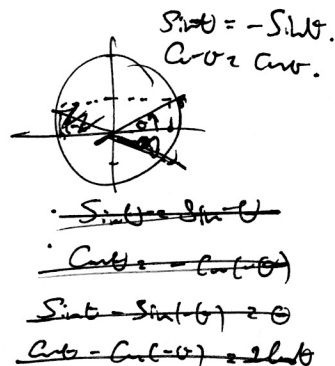 Sin-θ = -Sinθ.
Cos-θ = Cosθ.
θ
Sinθ = Sin-θ
Cosθ = -Cos(-θ)
Sinθ - Sin(-θ) = θ
Cosθ - Cos(-θ) = 2Cosθ